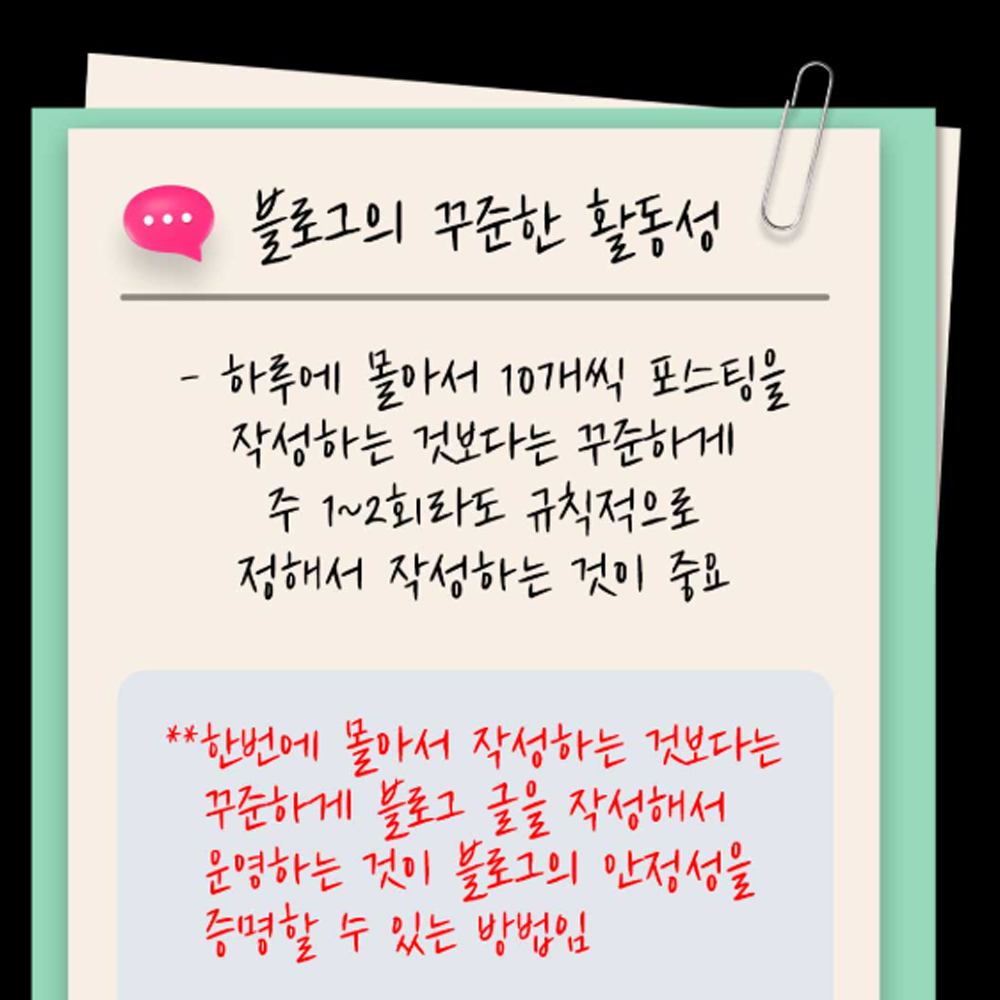 블로그의 꾸준한 활동성
- 하루에 몰아서 10개씩 포스팅을
작성하는 것보다는 꾸준하게
주 1~2회라도 규칙적으로
정해서 작성하는 것이 중요
**한번에 몰아서 작성하는 것보다는
꾸준하게 블로그 글을 작성해서
운영하는 것이 블로그의 안정성을
증명할 수 있는 방법임